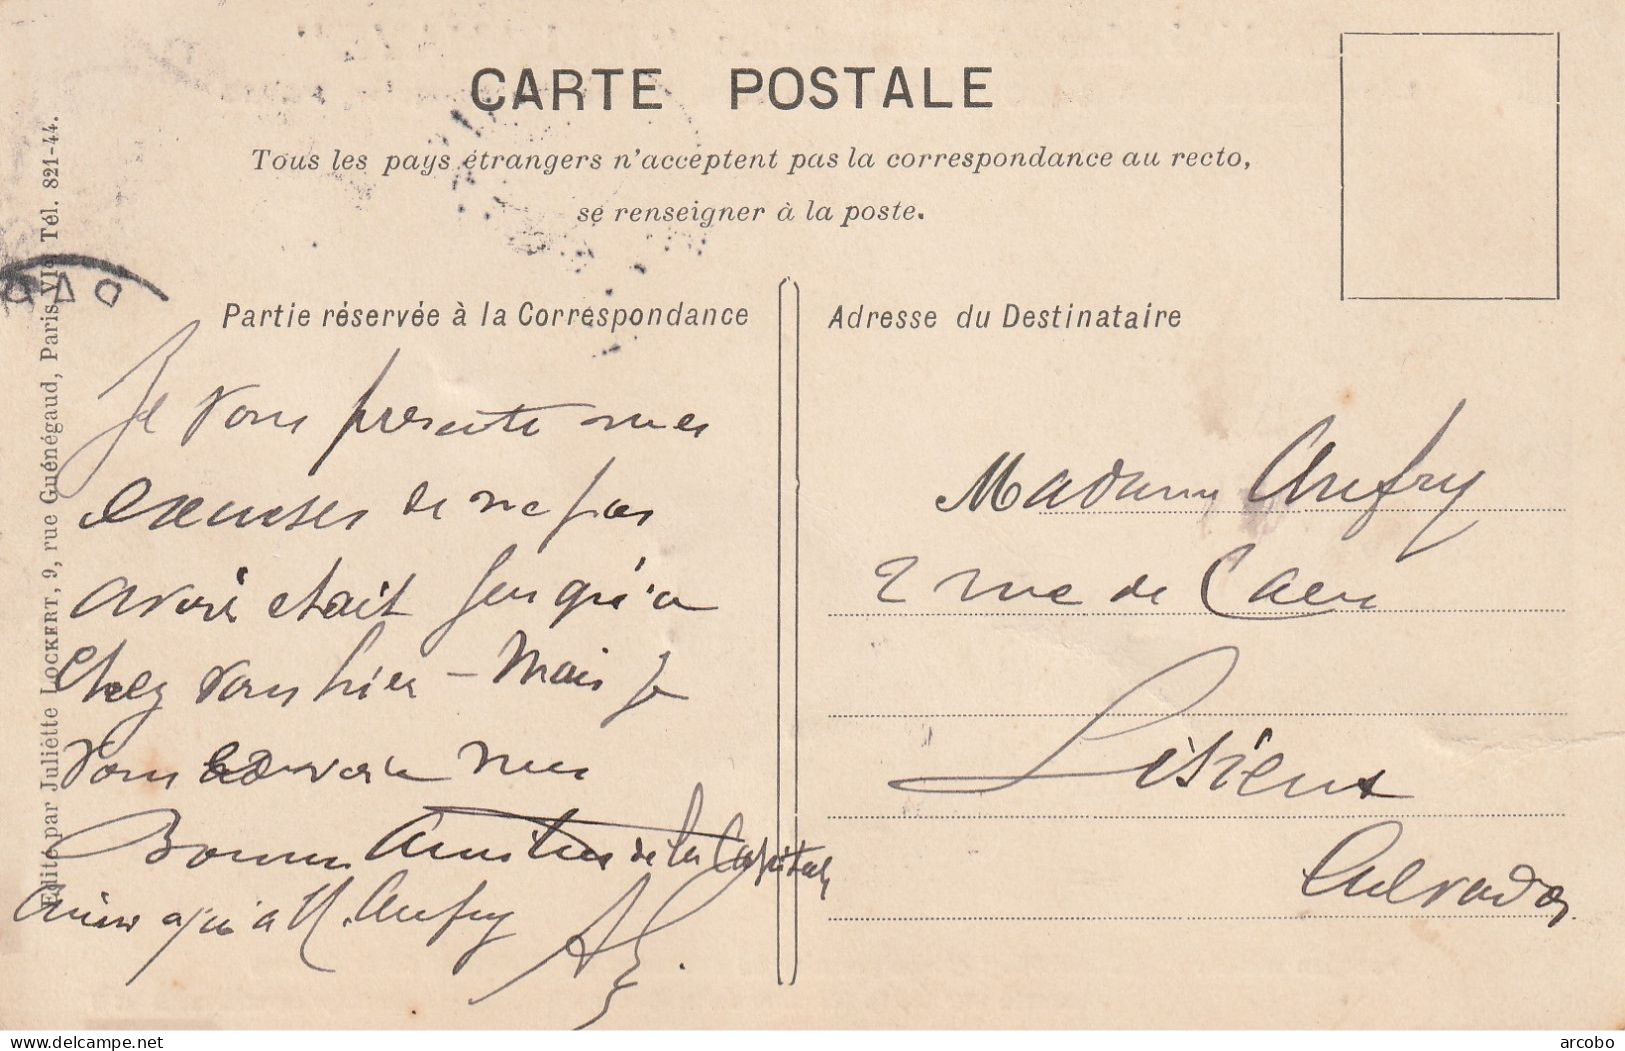 CARTE POSTALE
Tous les pays étrangers n'acceptent pas la correspondance au recto,
se renseigner à la poste.
Edité par Juliètte LOCKERT, 9, rue Guénégaud, Paris VIe Tél. 821-44.
Partie réservée à la Correspondance
Je vous présente mes
excuses de ne pas
avoir était jusqu'a
chez vous hier - Mais je
vous envoie mes
Bonnes Amitiés de la Capitale
ainsi qu'a M. Aufry
Adresse du Destinataire
Madame Aufry
2 rue de Caen
Lisieux
Calvados
delcampe.net
arcobo